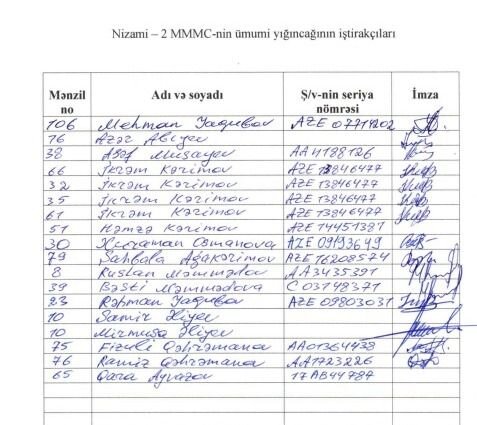 Nizami – 2 MMMC-nin ümumi yığıncağının iştirakçıları
Mənzil no Adı və soyadı Ş/v-nin seriya nömrəsi İmza
106 Mehman Yaqubov AZE 07714202
76 Azər Abıyev
38 Asəf Musayev AA4188126
66 İkram Kərimov AZE 13846477
32 İkram Kərimov AZE 13846477
35 İkram Kərimov AZE 13846477
61 İkram Kərimov AZE 13846477
51 Həmzə Kərimov AZE 14451381
30 Xuraman Osmanova AZE 09193649
79 Şahbala Ağakərimov AZE 16208574
8 Ruslan Məmmədov AA3435391
39 Bəsti Məmmədova C 03148371
23 Rəhman Yaqubov AZE 09803031
10 Samir Əliyev
10 Mirmusa Əliyev
75 Fizuli Qəhrəmanov AA01364438
76 Ramiz Qəhrəmanov AA1723226
65 Qara Ayvazov 17AB44787